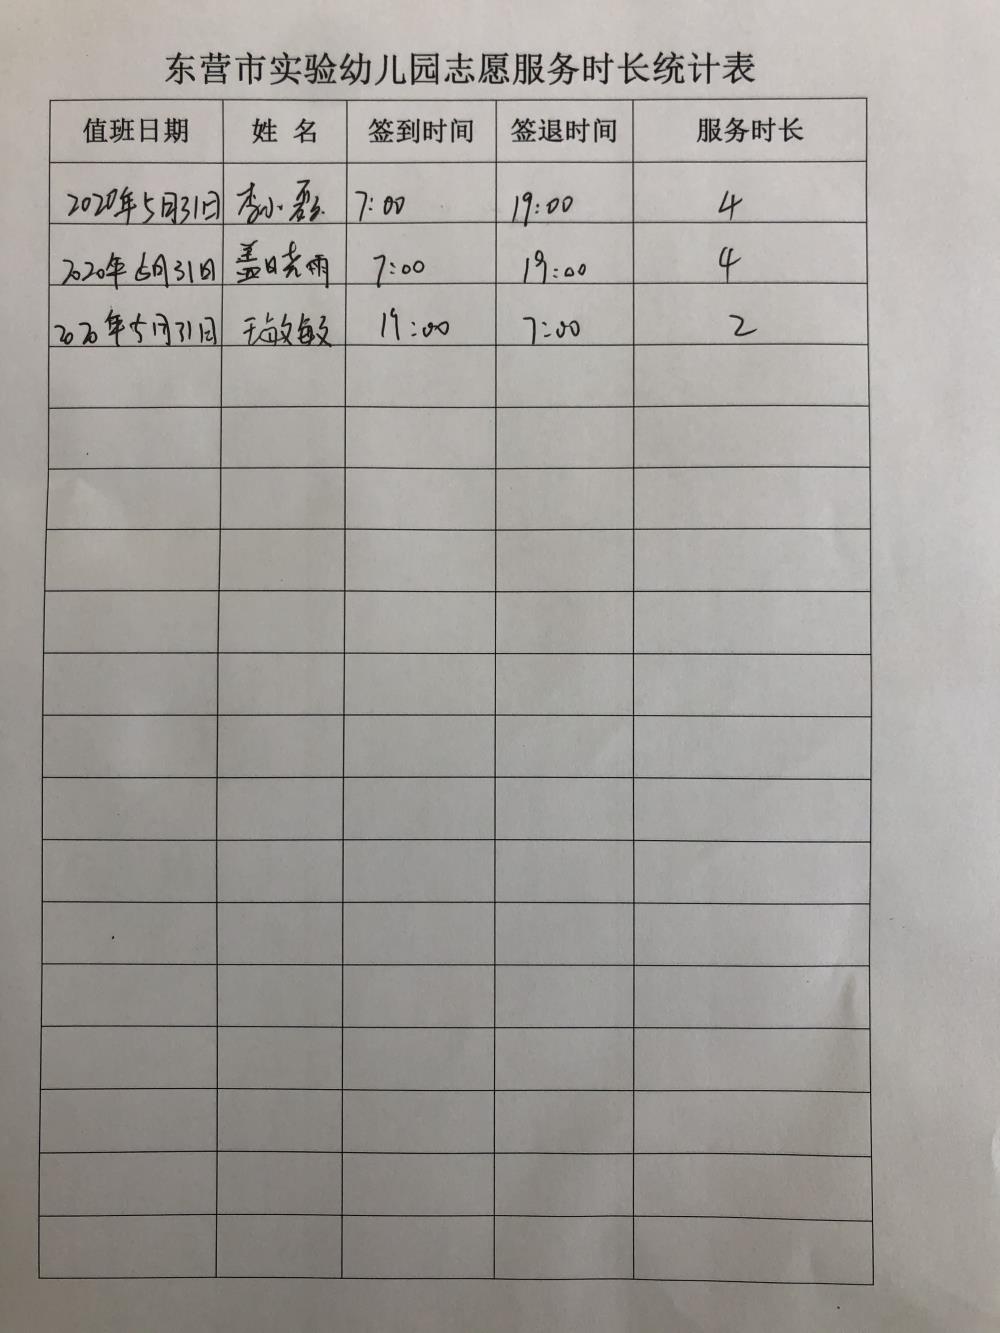 东营市实验幼儿园志愿服务时长统计表
值班日期 姓 名 签到时间 签退时间 服务时长
2020年5月31日 李小磊 7:00 19:00 4
2020年5月31日 盖晓雨 7:00 19:00 4
2020年5月31日 王敏敏 19:00 7:00 2